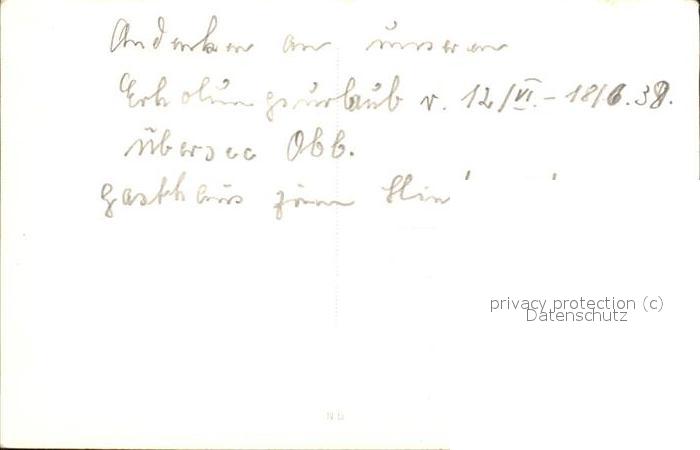 Andenken an unseren
Erholungsurlaub v. 12/VI.-18/6.38.
Übersee Obb.
Gasthaus zum
privacy protection (c)
Datenschutz
NB